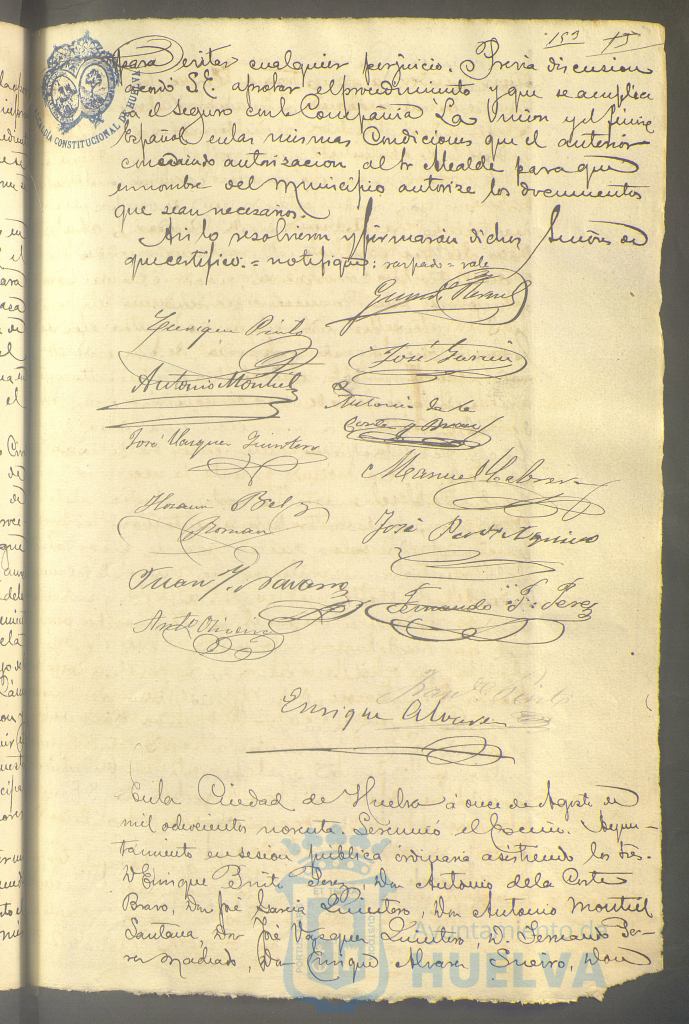 153 15
para evitar cualquier perjuicio. Previa discusion
acordó S.E. aprobar el procedimiento y que se amplíe
el seguro con la Compañia La Union y el Fenix
Español en las mismas Condiciones que el anterior
concediendo autorizacion al Sr Alcalde para que
en nombre del Municipio autorize los documentos
que sean necesarios.
Asi lo resolvieron y firmarán dichos Señores de
que certifico. = notifique: raspado = vale
Enrique Pinto
José García
Antonio Montiel
Antonio de la
Corte y Bravo
José Vazquez Quintero
Manuel Cabrera
Román
José
Juan J. Navarro
Fernando F. Perez
Antº Oliveira
Enrique Alvarez
En la Ciudad de Huelva á once de Agosto de
mil ochocientos noventa. Se reunió el Excmo. Ayun-
tamiento en sesion pública ordinaria asistiendo los Sres.
D. Enrique Pinto Perez, Don Antonio de la Corte
Bravo, Don José García Quintero, Don Antonio Montiel
Santana, Don José Vazquez Quintero, D. Fernando
Machado, Don Enrique Alvarez Sueiro, Don
ALCALDÍA CONSTITUCIONAL DE HUELVA
Ayuntamiento de
HUELVA